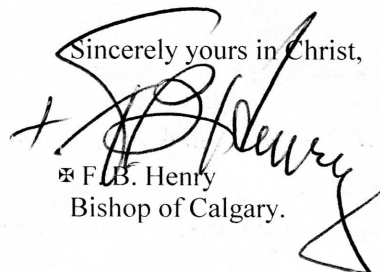 Sincerely yours in Christ,
+ FB Henry
✠ F. B. Henry
Bishop of Calgary.